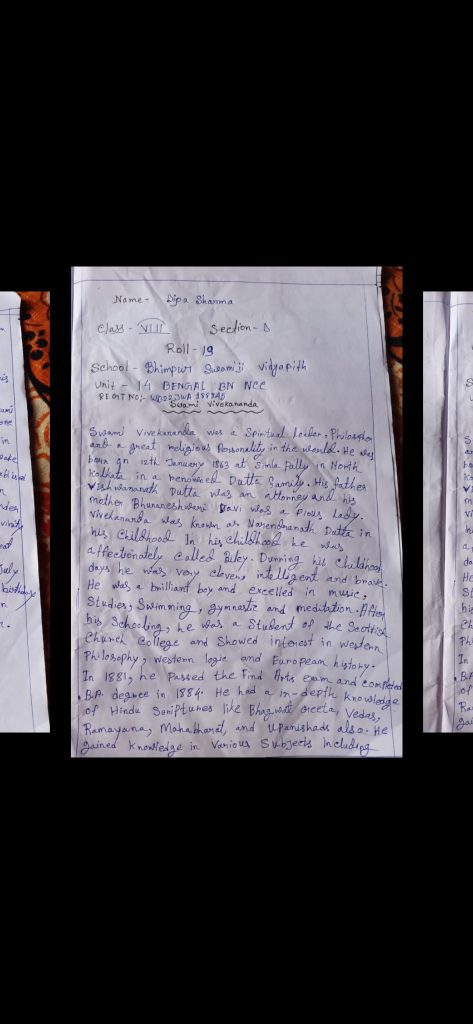 Name - Dipa Sharma
Class - VIII Section - D
Roll - 19
School - Bhimpur Swamiji Vidyapith
Unit - 14 BENGAL BN NCC
REGT NO:-
Swami Vivekananda
Swami Vivekananda was a Spiritual Leader, Philosopher
and a great religious Personality in the world. He was
born on 12th January 1863 at Simla Pally in North
Kolkata in a renowned Dutta family. His father
Vishwananath Dutta was an attorney and his
mother Bhuvaneshwari Davi was a Pious Lady.
Vivekananda was known as Narendnanath Dutta in
his Childhood In his Childhood he was
affectionately Called Biley. Durning his Childhood
days he was very cleven, intelligent and brave.
He was a brilliant boy and excelled in music,
Studies, Swimming, gymnastic and meditation. After
his Schooling, he was a Student of the Scottish
Church College and Showed interest in western
Philosophy, western logic and European history.
In 1881, he Passed the Find Arts exam and completed
B.A. degree in 1884. He had a in-depth knowledge
of Hindu Scriptures like Bhagwat Greeta, Vedas,
Ramayana, Mahabharat, and Upanishads also. He
gained knowledge in Various Subjects Including